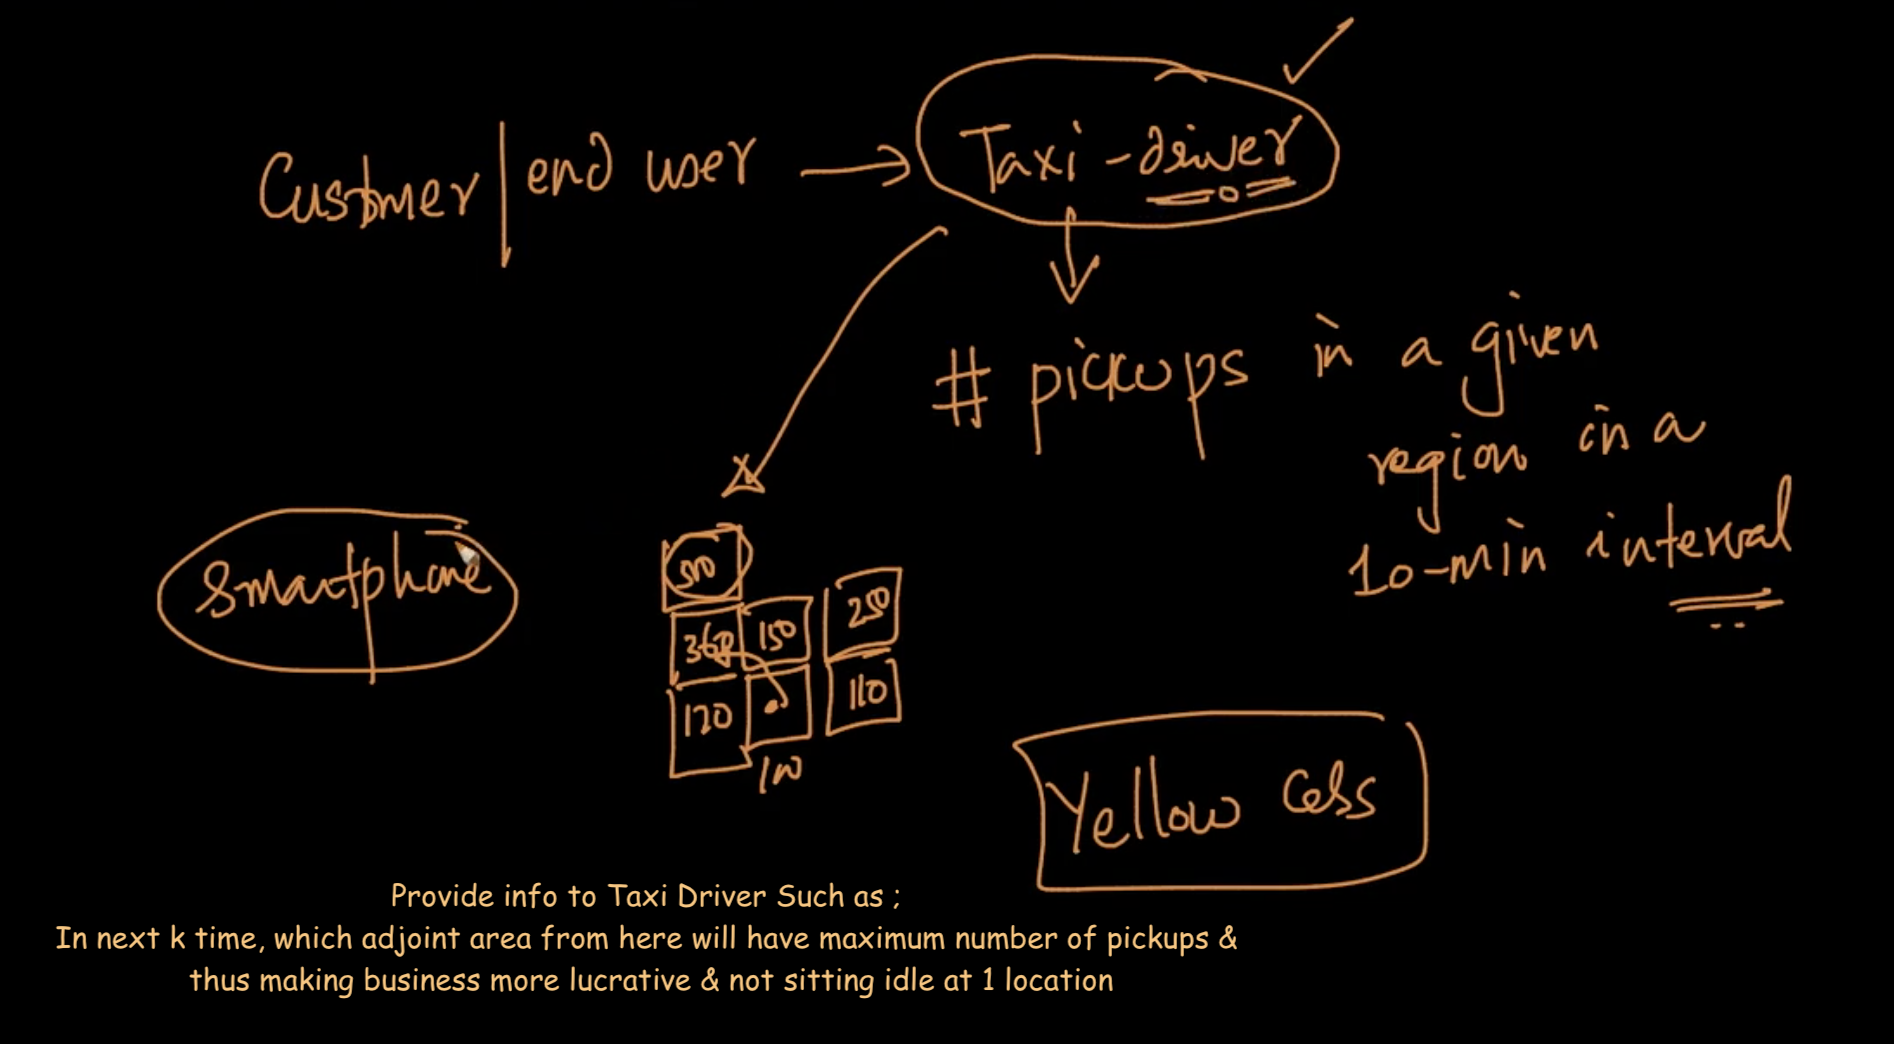 Customer | end user → Taxi-driver
# pickups in a given
region in a
10-min interval
Smartphone
250
150
120
110
Yellow Cabs
Provide info to Taxi Driver Such as ;
In next k time, which adjoint area from here will have maximum number of pickups &
thus making business more lucrative & not sitting idle at 1 location